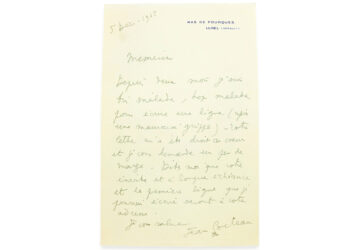 MAS DE FOURQUES.
LUNEL (HÉRAULT)
Messieurs
Depuis deux mois j'ai
été malade, trop malade
pour écrire une ligne (après
une mauvaise grippe) - votre
lettre m'a été droit au cœur
et je vous demande un peu de
Dites moi que votre
et la première ligne que je
pourrai écrire seront à votre
adresse.
Je vous salue
Jean Cocteau